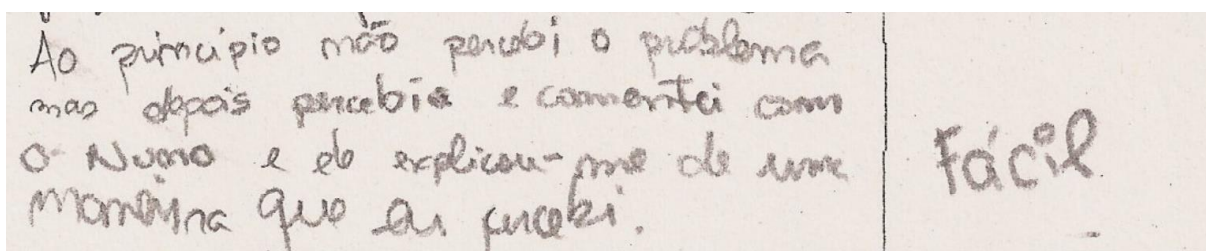 Ao principio não percebi o problema
mas depois percebia e comentei com
o Nuno e ele explicou-me de uma
maneira que eu percebi.
Fácil